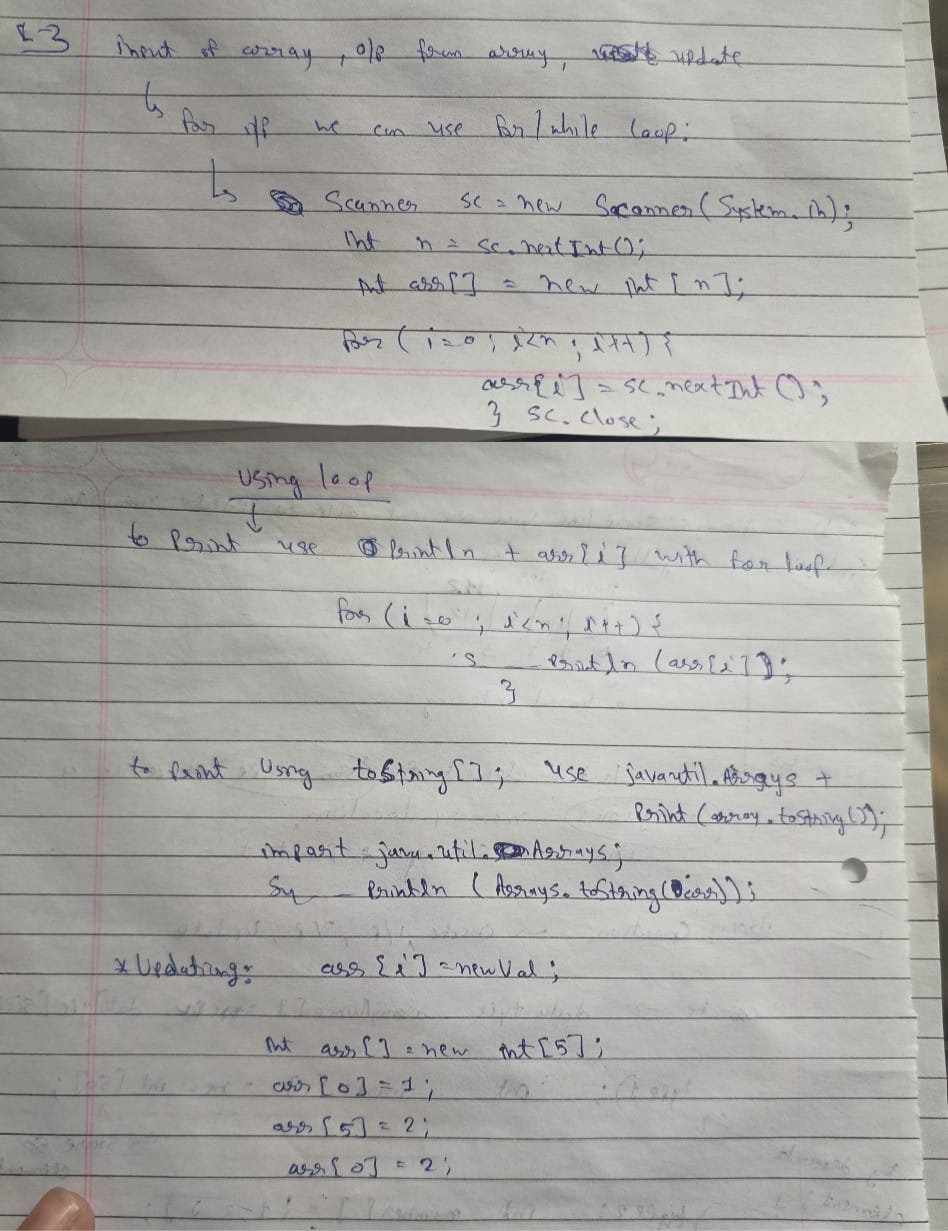 L-3 input of array, o/p from array, update
↳ for i/p we can use for/while loop:
↳ Scanner sc = new Scanner(System.in);
int n = sc.nextInt();
int arr[] = new int[n];
for (i=0; i<n; i++) {
arr[i] = sc.nextInt();
} sc.close;
Using loop
↓
to Print use println + arr[i] with for loop.
for (i=0; i<n; i++) {
s___println(arr[i]);
}
to Print Using toString[]; use javautil.Arrays +
Print(array.toString());
import java.util.Arrays;
Sy___println(Arrays.toString(arr));
* Updating: arr[i] = newVal;
int arr[] = new int[5];
arr[0] = 1;
arr[5] = 2;
arr[0] = 2;